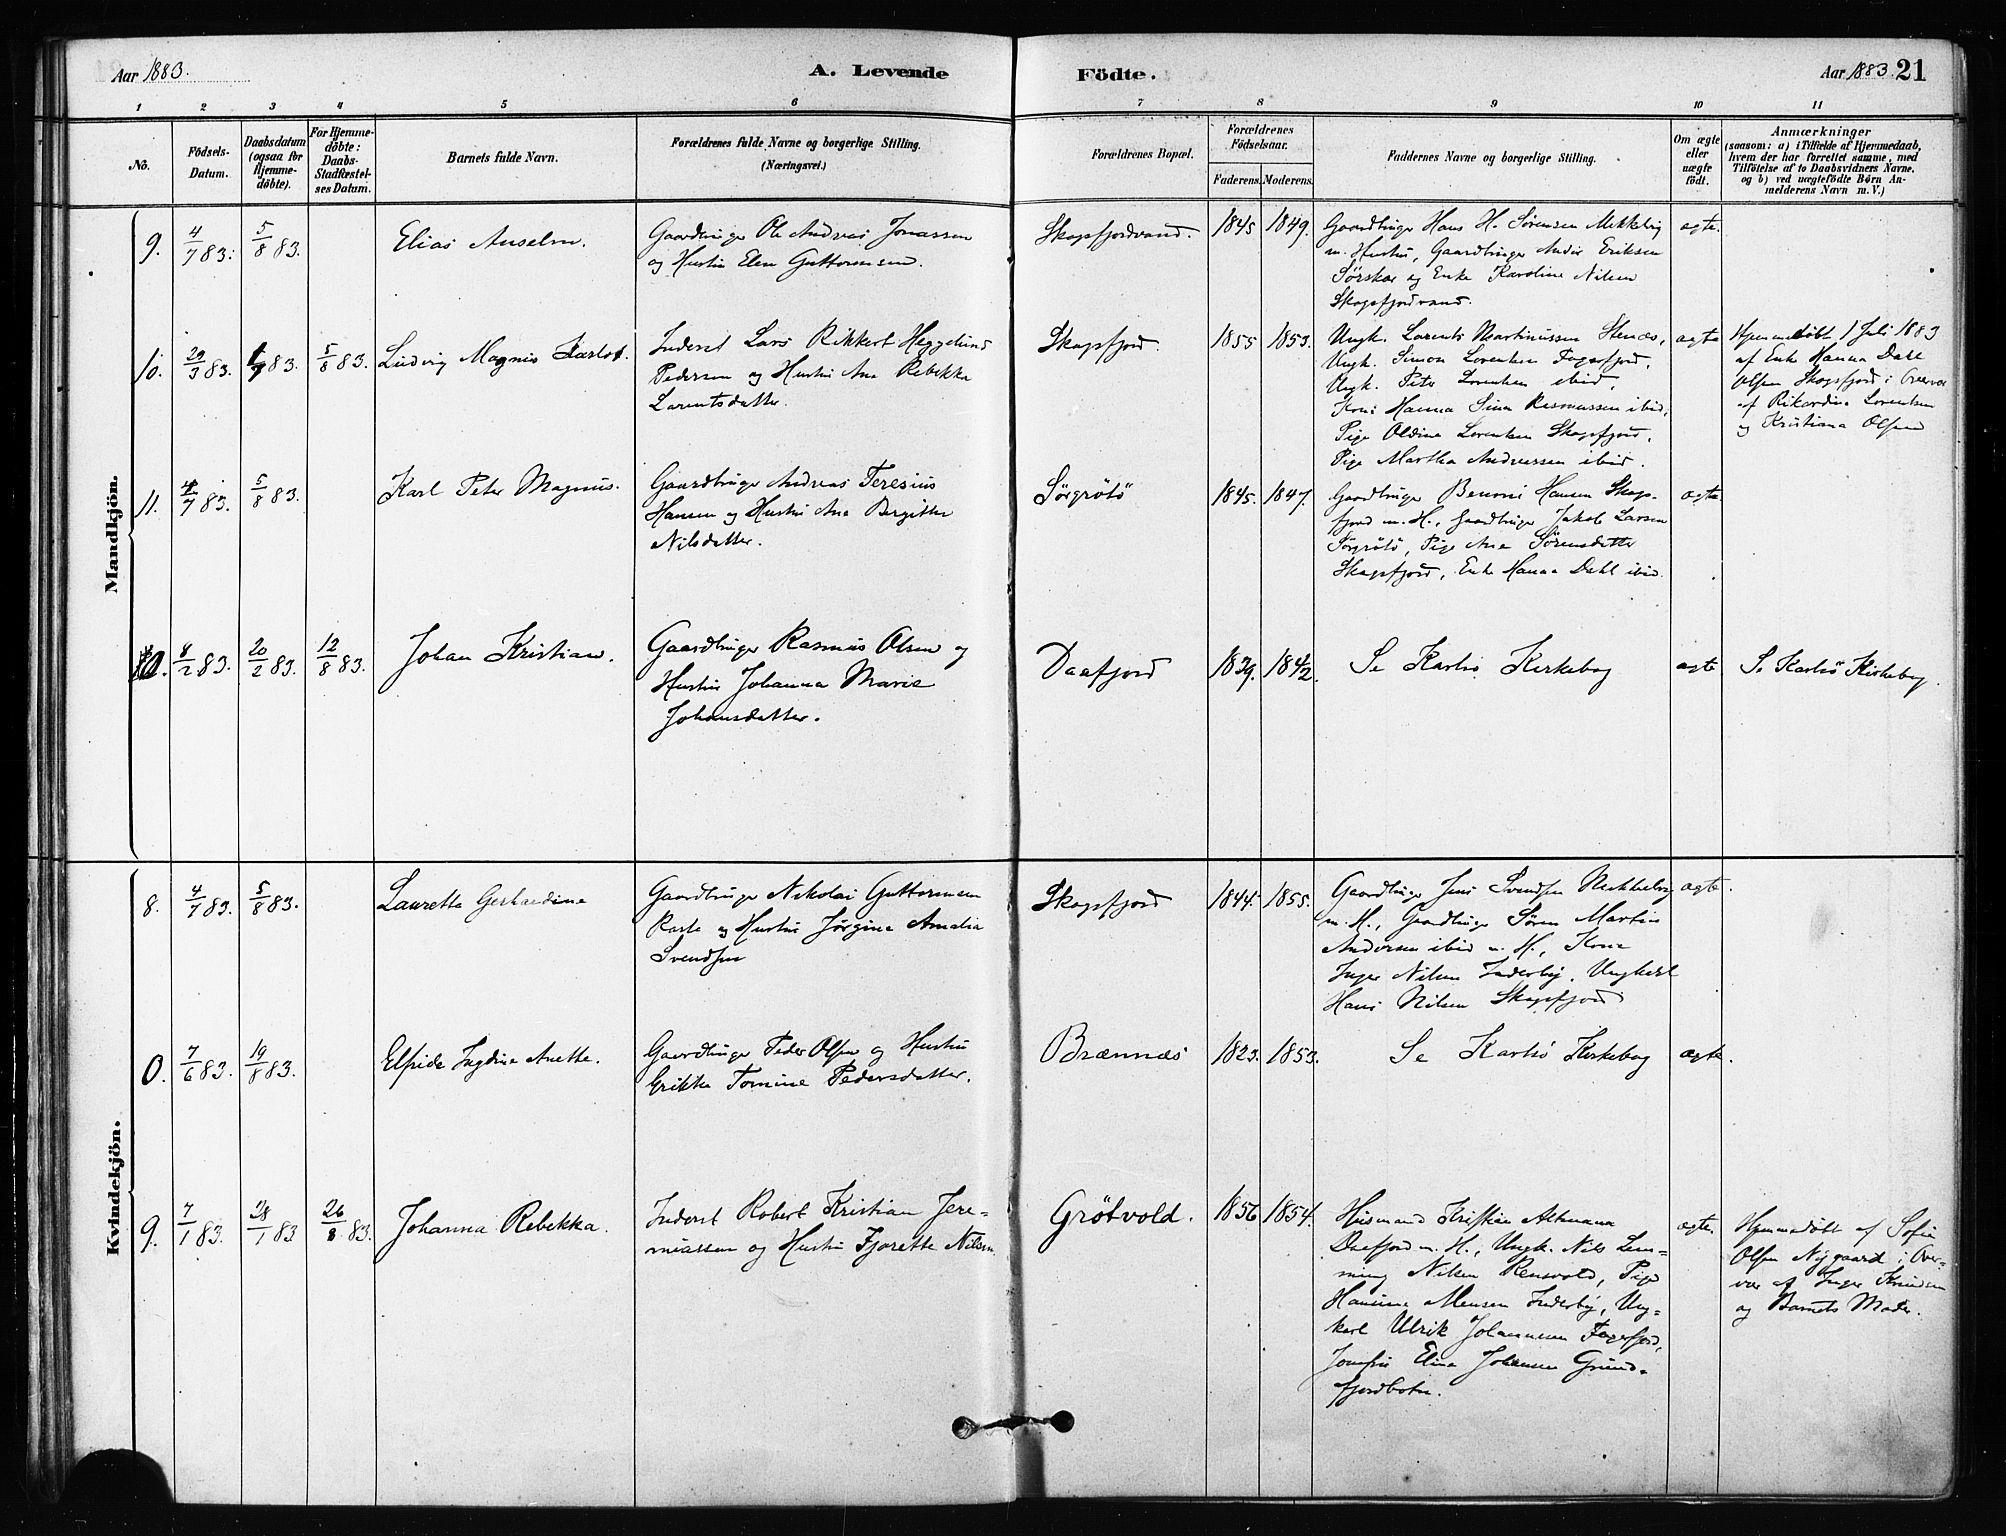 Aar 1883.
A. Levende
Födte.
Aar 1883. 21
1 2 3 4 5 6 7 8 9 10 11
Nô.
Födsels-
Datum.
Daabsdatum
(ogsaa for
Hjemme-
döbte).
For Hjemme-
döbte:
Daabs-
Stadfæstel-
ses Datum.
Barnets fulde Navn.
Forældrenes fulde Navne og borgerlige Stilling.
(Næringsvei.)
Forældrenes Bopæl.
Forældrenes
Födselsaar.
Faderens. Moderens.
Faddernes Navne og borgerlige Stilling.
Om ægte
eller
uægte
födt.
Anmærkninger
(saasom: a) i Tilfælde af Hjemmedaab,
hvem der har forrettet samme, med
Tilföielse af to Daabsvidners Navne.
og b) ved uægtefödte Börn An-
melderens Navn m. V.)
Mandkjön.
9. 4/7 83. 5/8 83. Elias Anselm.
Gaardbruger Ole Andreas Jonassen
og Hustru Elen Guttormsen.
Skogsfjordvand. 1845 1849.
Gaardbruger Hans H. Sørensen Mikkelvig
m. Hustru, Gaardbruger Andr. Eriksen
Sörskar og Enke Karoline Nilsen
Skogsfjordvand.
ægte.
10. 29/3 83. 1/7 83. 5/8 83. Ludvig Magnus Karlot.
Inderst Lars Rikkert Heggelund
Pedersen og Hustru Ane Rebekka
Larentsdatter.
Skogsfjord. 1855 1853.
Ungk. Lorents Martinussen Stenæs,
Ungk. Simon Lorentsen Fagerfjord,
Ungk. Peter Lorentsen ibid,
Kone Hanna Sina Rasmussen ibid,
Pige Oldine Lorentsen Skogsfjord,
Pige Martha Andreassen ibid.
ægte
Hjemmedöbt 1 Juli 1883
af Enke Hanna Dahl
Olsen Skogsfjord i Overvær
af Rikardine Lorentsen
og Kristiana Olsen
11. 4/7 83. 5/8 83. Karl Peter Magnus.
Gaardbruger Andreas Teresius
Hansen og Hustru Ane Bergitte
Nilsdatter.
Sörgrötö 1845. 1847.
Gaardbruger Benoni Hansen Skogs-
fjord m. H., Gaardbruger Jakob Larsen
Sörgrötö, Pige Ane Sörensdatter
Skogsfjord, Enke Hanna Dahl ibid.
ægte
0. 8/2 83. 20/2 83. 12/8 83. Johan Kristian.
Gaardbruger Rasmus Olsen og
Hustru Johanna Marie
Johansdatter.
Daafjord 1839. 1842.
Se Karlsö Kirkebog
ægte
Se Karlsö Kirkebog.
Kvindekjön.
8. 4/7 83. 5/8 83. Lauretta Gerhardine
Gaardbruger Nikolai Guttormsen
Raste og Hustru Jörgine Amalia
Svendsen
Skogsfjord 1844. 1855.
Gaardbruger Jens Svendsen Mikkelvig
m. H., Gaardbruger Sören Martin
Andersen ibid m. H., Kone
Inger Nilsen Inderby, Ungkarl
Hans Nilsen Skogsfjord
ægte.
0. 7/6 83. 19/8 83. Elfride Ingdine Anette.
Gaardbruger Peder Olsen og Hustru
Erikke Tomine Pedersdatter.
Brænnæs 1823. 1853.
Se Karlsö Kirkebog
ægte.
9. 7/1 83. 28/1 83 26/8 83. Johanna Rebekka.
Inderst Robert Kristian Jere-
miassen og Hustru Fjorette Nilsen
Grötvold. 1856 1854.
Husmand Kristian Altmann
Daafjord m. H., Ungk. Nils Lem-
ming Nilsen Rensvold, Pige
Hansine Monsen Inderby, Ung-
karl Ulrik Johannesen Fagerfjord,
Jomfru Elina Johansen Grund-
fjordbotn.
ægte.
Hjemmedöbt af Sofie
Olsen Nygaard i Over-
vær af Inger Knudsen
og Barnets Moder.